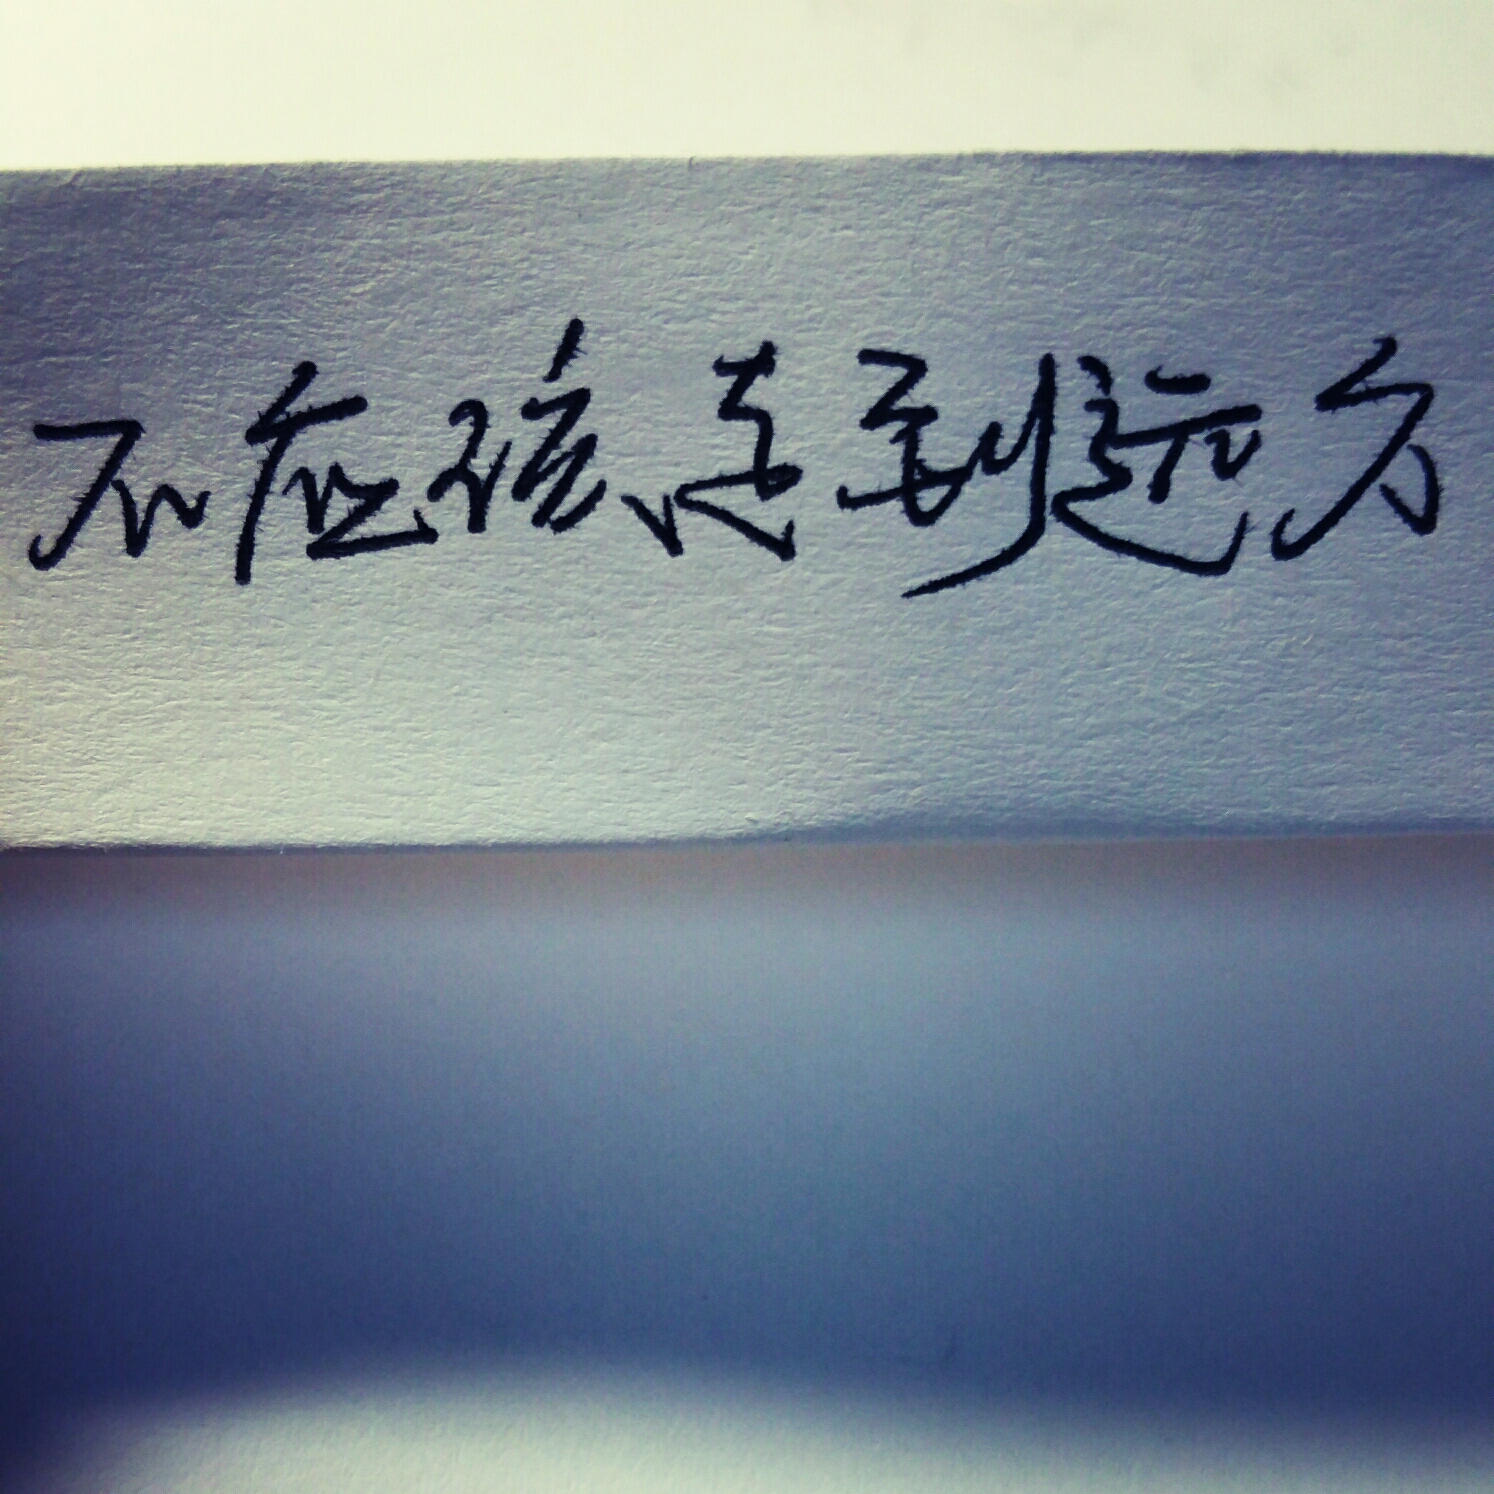 不应该走到远方